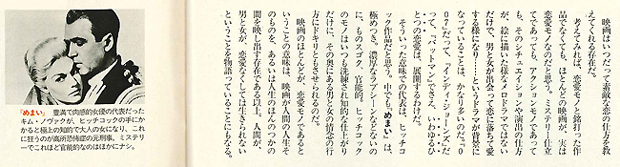 映画はいつだって素敵な恋の仕方を教
えてくれる存在だ。
考えてみれば、恋愛モノと銘打った作
品でなくても、ほとんどの映画が、実は
恋愛モノなのだと思う。ミステリー仕立
てであっても、アクションモノであって
も、そのシチュエイションや演出の仕方
が、絵に描いた様なメロドラマではない
だけで、男と女が出会って恋に落ちて愛
する様になり……というドラマが背景に
なっていることは、かなり多いのだ。'0
07'だって『インディ・ジョーンズ』だ
って、『バットマン』でさえ、いわゆるひ
とつの恋愛は、展開するわけだ。
そういった意味での代表は、ヒッチコ
ック作品だと思う。中でも『めまい』は、
極めつき。濃厚なラブシーンなどないの
に、もうスゴク、官能的。ヒッチコック
のモノはいつも洗練され知的な仕上がり
だけに、その奥にある男と女の情念の行
方にドキリともさせられるのだ。
映画のほとんどが、恋愛モノであると
いうことの意味は、映画が人間の人生そ
のものを、あるいは人生のほんのつかの
間を映し出す存在である以上。人間が、
男と女が、恋愛なくしては生きられない
ということを物語っていることにもなる。
『めまい』 豊満で肉感的女優の代表だった
キム・ノヴァクが、ヒッチコックの手にか
かると極上の知的で大人の女になり、これ
に狂うのが高所恐怖症の元刑事。ミステリ
ーでこれほど官能的なのはほかにナシ。